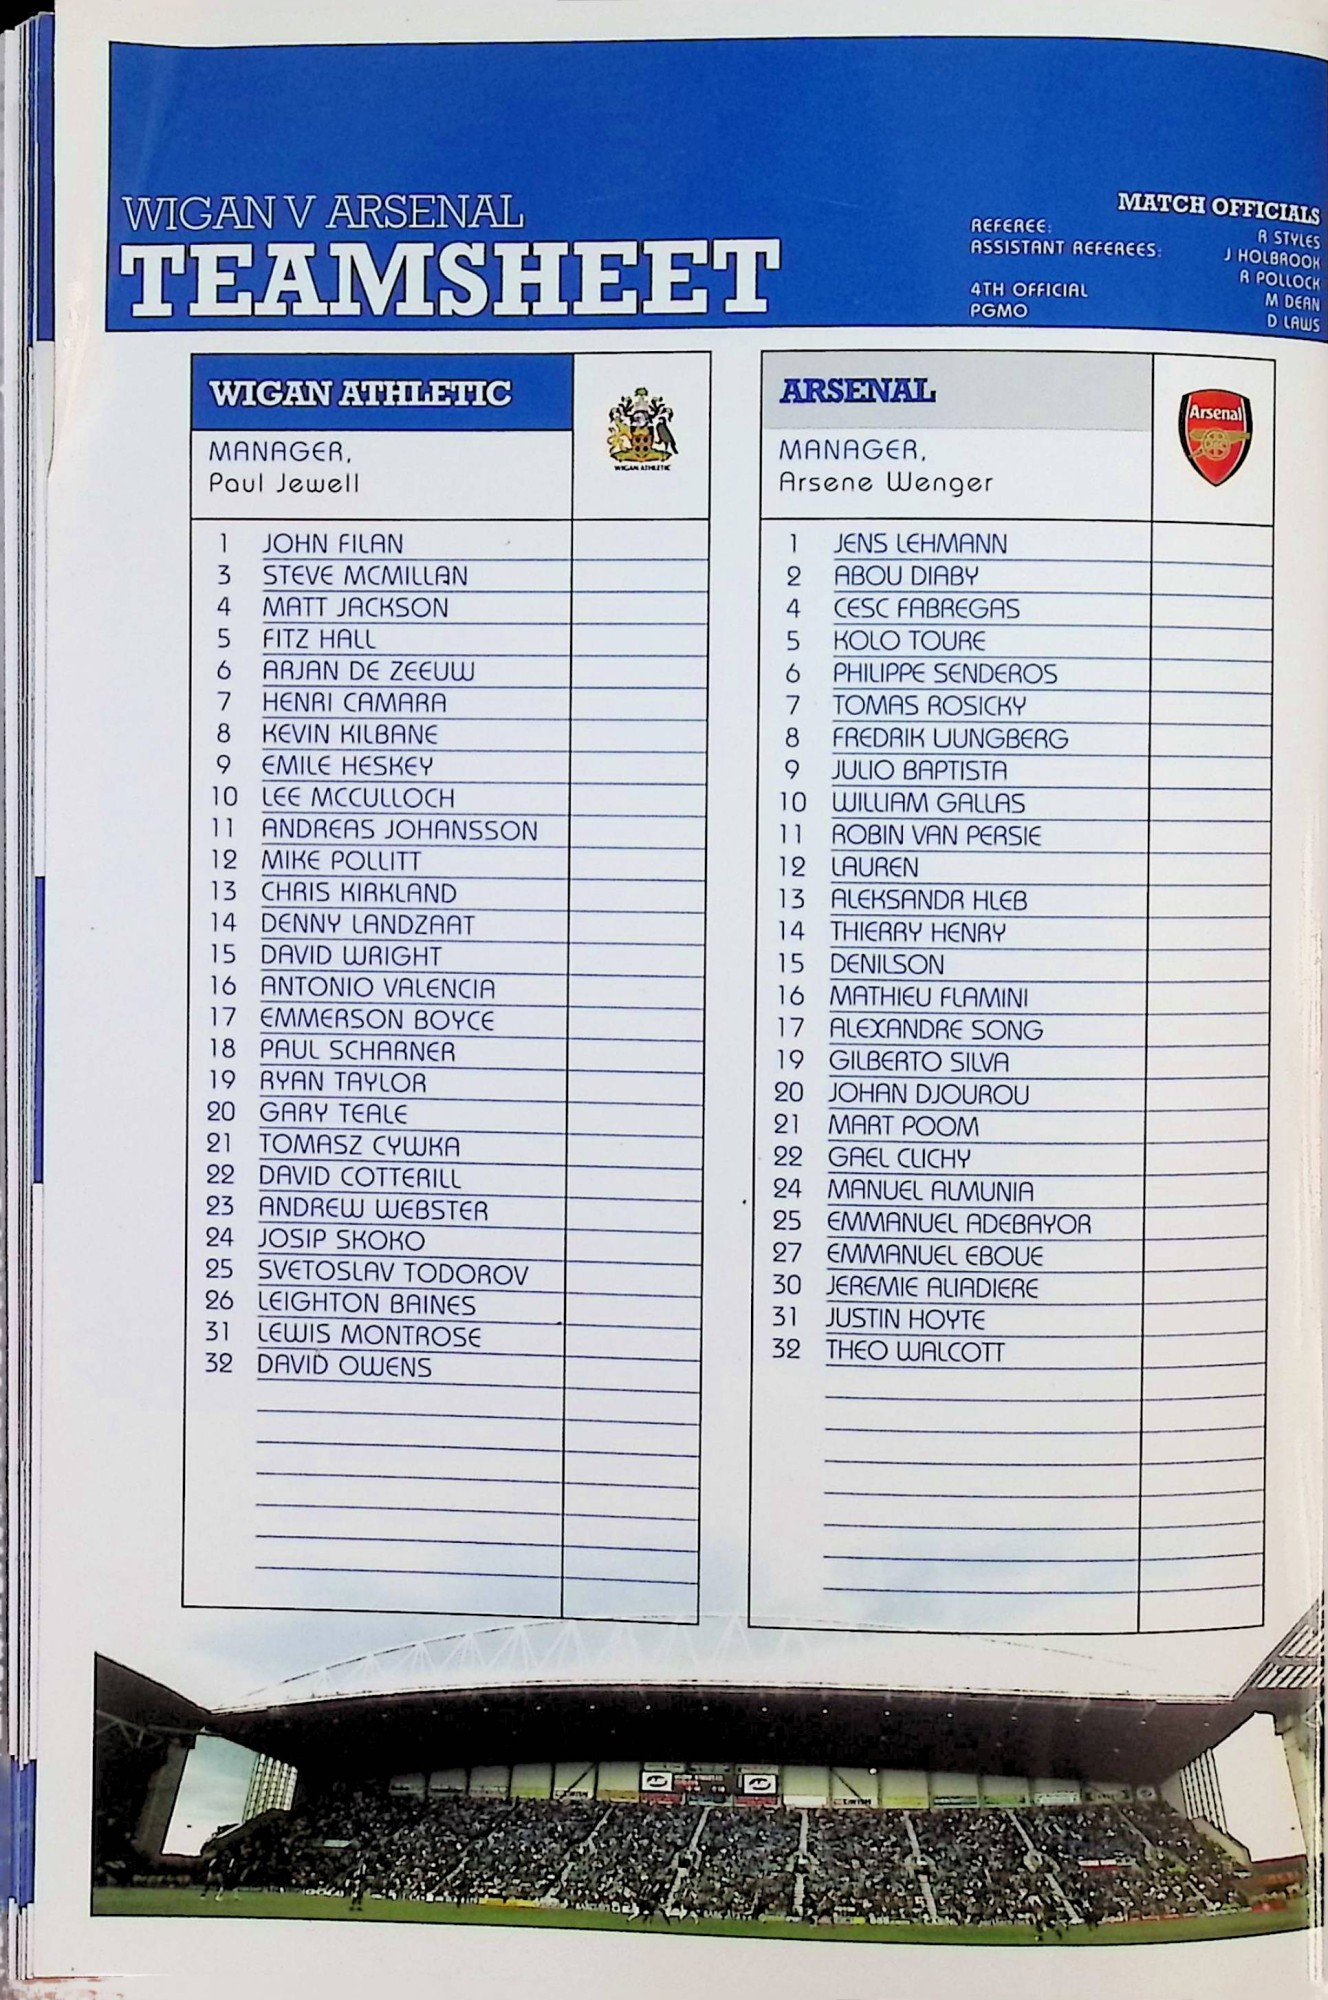 WIGAN V ARSENAL
TEAMSHEET
MATCH OFFICIALS
REFEREE: R STYLES
ASSISTANT REFEREES: J HOLBROOK
R POLLOCK
4TH OFFICIAL M DEAN
PGMO D LAWS
WIGAN ATHLETIC
WIGAN ATHLETIC
MANAGER,
Paul Jewell
1 JOHN FILAN
3 STEVE MCMILLAN
4 MATT JACKSON
5 FITZ HALL
6 ARJAN DE ZEEUW
7 HENRI CAMARA
8 KEVIN KILBANE
9 EMILE HESKEY
10 LEE MCCULLOCH
11 ANDREAS JOHANSSON
12 MIKE POLLITT
13 CHRIS KIRKLAND
14 DENNY LANDZAAT
15 DAVID WRIGHT
16 ANTONIO VALENCIA
17 EMMERSON BOYCE
18 PAUL SCHARNER
19 RYAN TAYLOR
20 GARY TEALE
21 TOMASZ CYWKA
22 DAVID COTTERILL
23 ANDREW WEBSTER
24 JOSIP SKOKO
25 SVETOSLAV TODOROV
26 LEIGHTON BAINES
31 LEWIS MONTROSE
32 DAVID OWENS
ARSENAL
Arsenal
MANAGER,
Arsene Wenger
1 JENS LEHMANN
2 ABOU DIABY
4 CESC FABREGAS
5 KOLO TOURE
6 PHILIPPE SENDEROS
7 TOMAS ROSICKY
8 FREDRIK LJUNGBERG
9 JULIO BAPTISTA
10 WILLIAM GALLAS
11 ROBIN VAN PERSIE
12 LAUREN
13 ALEKSANDR HLEB
14 THIERRY HENRY
15 DENILSON
16 MATHIEU FLAMINI
17 ALEXANDRE SONG
19 GILBERTO SILVA
20 JOHAN DJOUROU
21 MART POOM
22 GAEL CLICHY
24 MANUEL ALMUNIA
25 EMMANUEL ADEBAYOR
27 EMMANUEL EBOUE
30 JEREMIE ALIADIERE
31 JUSTIN HOYTE
32 THEO WALCOTT